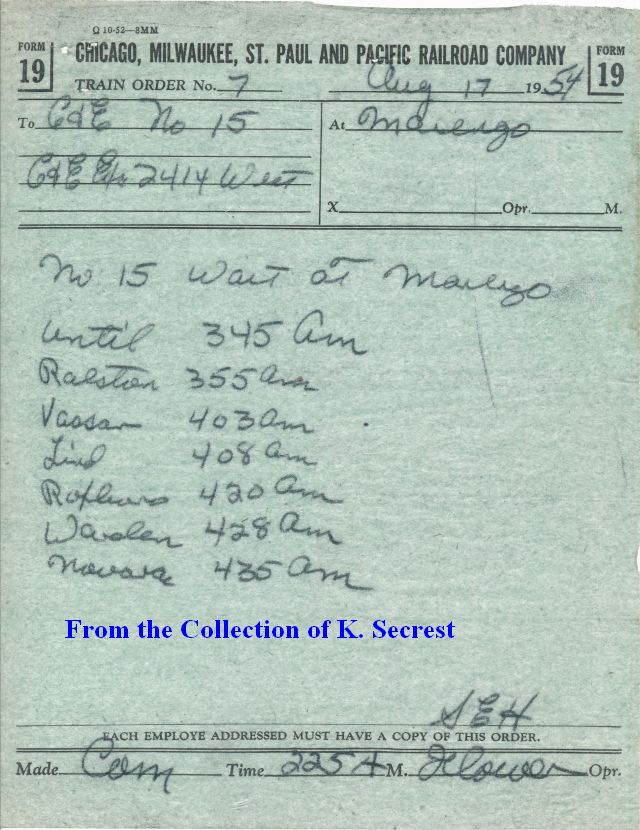 Q 10-52—8MM
FORM 19
CHICAGO, MILWAUKEE, ST. PAUL AND PACIFIC RAILROAD COMPANY
FORM 19
TRAIN ORDER No. 7 Aug 17 1954
To C&E No 15 At Marengo
C&E Ex 2414 West
X Opr. M.
No 15 Wait at Marengo
until 345 am
Ralston 355 am
Vassar 403 am
Lind 408 am
420 am
Warden 428 am
Novara 435 am
From the Collection of K. Secrest
SEH
EACH EMPLOYE ADDRESSED MUST HAVE A COPY OF THIS ORDER.
Made Com Time 225 A M. Opr.